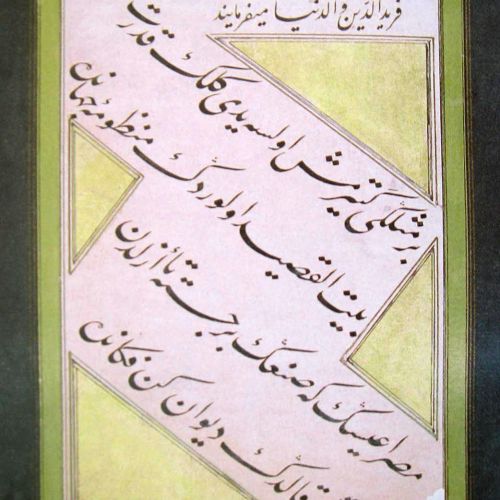 فرید الدین و الدنیا میفرمایند
بر مثلکی کتیرمش اولسه یدی کلك قدرت
بیت القصید اولوردك منظومۀ جهانده
مصراعیسك که صنعك برجسته تا ازلدن
قالدك دیوان کن فکانده